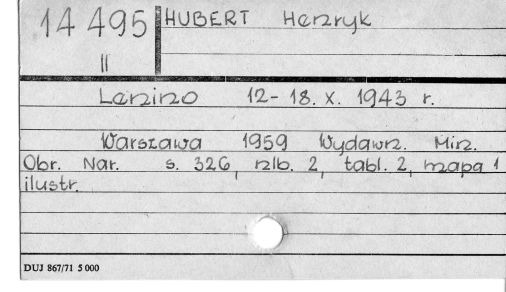 14 495 HUBERT Henryk
II
Lenino 12-18. X. 1943 r.
Warszawa 1959 Wydawn. Min.
Obr. Nar. s. 326, nlb. 2, tabl. 2, mapa 1
ilustr.
DUJ 867/71 5 000